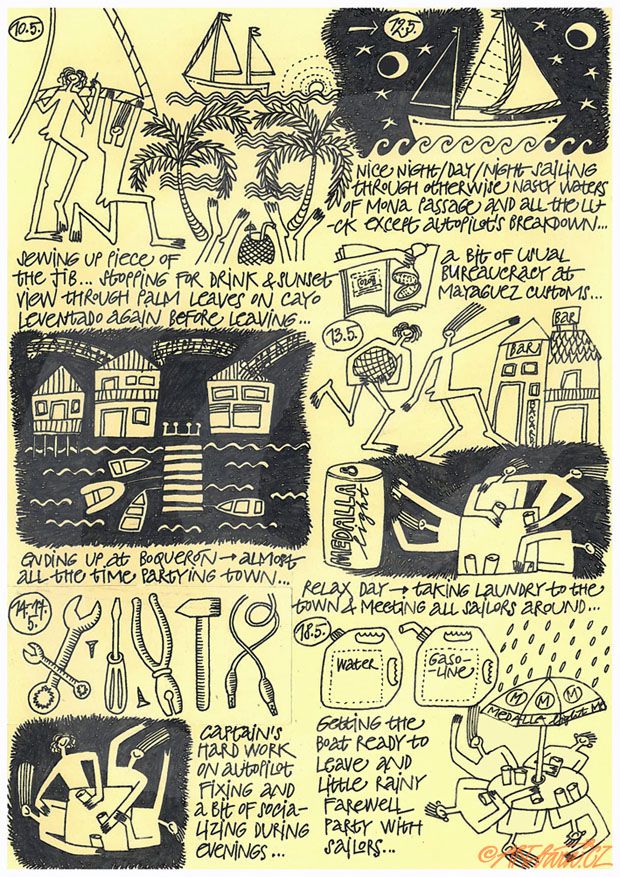 10.5.
SEWING UP PIECE OF
THE JIB... STOPPING FOR DRINK & SUNSET
VIEW THROUGH PALM LEAVES ON CAYO
LEVENTADO AGAIN BEFORE LEAVING...
→ 12.5.
NICE NIGHT/DAY/NIGHT SAILING
THROUGH OTHERWISE NASTY WATERS
OF MONA PASSAGE AND ALL THE LU-
-CK EXCEPT AUTOPILOT'S BREAKDOWN...
A BIT OF USUAL
BUREAUCRACY AT
MAYAGUEZ CUSTOMS...
ENDING UP AT BOQUERON → ALMOST
ALL THE TIME PARTYING TOWN...
13.5.
BAR
BAR
BACARDI
MEDALLA
Light
RELAX DAY → TAKING LAUNDRY TO THE
TOWN & MEETING ALL SAILORS AROUND...
14.-17.
5.
CAPTAIN'S
HARD WORK
ON AUTOPILOT
FIXING AND
A BIT OF SOCIA-
LIZING DURING
EVENINGS...
18.5.
WATER
GASO-
-LINE
M M M
MEDALLA Light M
GETTING THE
BOAT READY TO
LEAVE AND
LITTLE RAINY
FAREWELL
PARTY WITH
SAILORS...